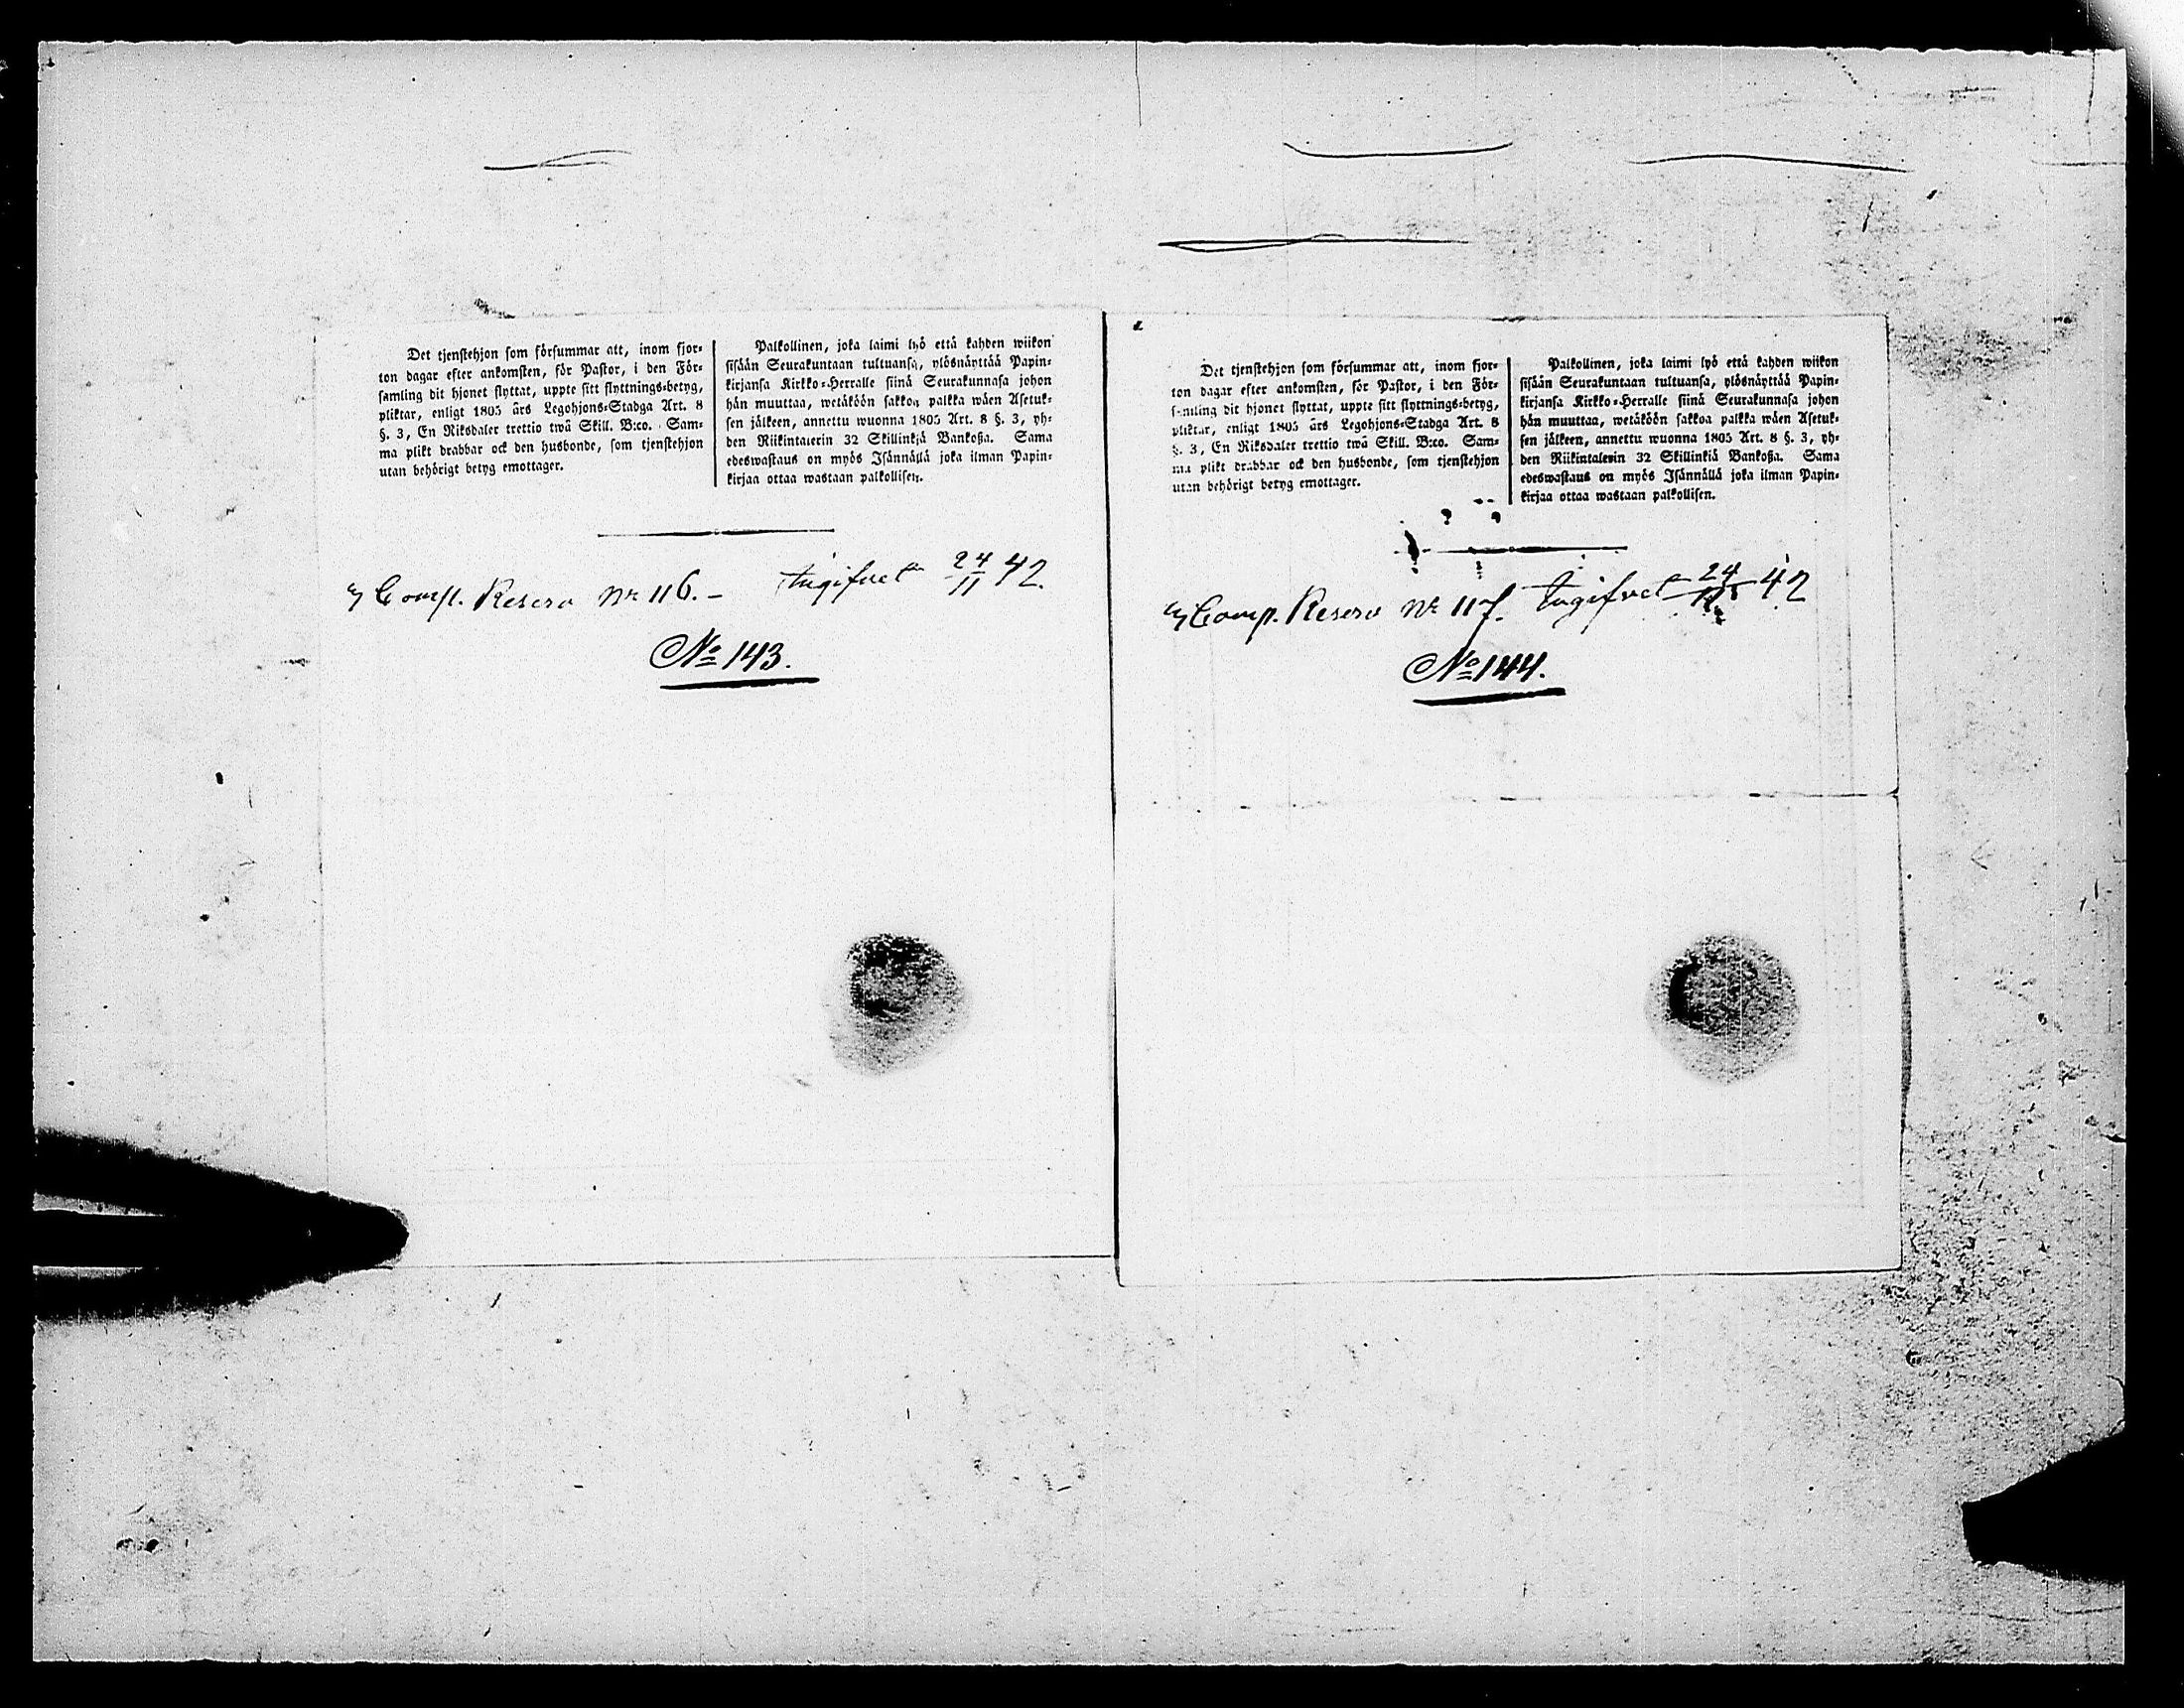 Det tjenstehjon som försummar att, inom fjor-
ton dagar efter ankomsten, för Pastor, i den För-
samling dit hjonet flyttat, uppte sitt flyttnings-betyg,
pliktar, enligt 1805 års Legohjons-Stadga Art. 8
§. 3, En Riksdaler trettio twå Skill. B:co. Sam-
ma plikt drabbar ock den husbonde, som tjenstehjon
utan behörigt betyg emottager.
Palkollinen, joka laimi lyö että kahden wiikon
sisään Seurakuntaan tultuansa, ylösnäyttää Papin-
kirjansa Kirkko-Herralle siinä Seurakunnasa johon
hän muuttaa, wetäköön sakkoa palkka wäen Asetuk-
sen jälkeen, annettu wuonna 1805 Art. 8 §. 3, yh-
den Riikintalerin 32 Skillinkiä Bankoßa. Sama
edeswastaus on myös Isännällä joka ilman Papin-
kirjaa ottaa wastaan palkollisen.
Comp. Reserv Nr 116. - Ingifvet 24/11 42.
No 143.
Det tjenstehjon som försummar att, inom fjor-
ton dagar efter ankomsten, för Pastor, i den För-
samling dit hjonet flyttat, uppte sitt flyttnings-betyg,
pliktar, enligt 1805 års Legohjons-Stadga Art. 8
§. 3, En Riksdaler trettio twå Skill. B:co. Sam-
ma plikt drabbar ock den husbonde, som tjenstehjon
utan behörigt betyg emottager.
Palkollinen, joka laimi lyö että kahden wiikon
sisään Seurakuntaan tultuansa, ylösnäyttää Papin-
kirjansa Kirkko-Herralle siinä Seurakunnasa johon
hän muuttaa, wetäköön sakkoa palkka wäen Asetuk-
sen jälkeen, annettu wuonna 1805 Art. 8 §. 3, yh-
den Riikintalerin 32 Skillinkiä Bankoßa. Sama
edeswastaus on myös Isännällä joka ilman Papin-
kirjaa ottaa wastaan palkollisen.
Comp. Reserv Nr 117. Ingifvet 24/11 42
No 144.